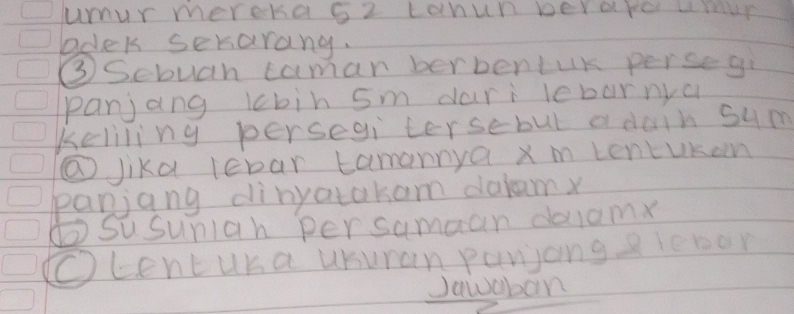 umur mereka 52 tahun berapa umur
adek sekarang.
③ Sebuah taman berbentuk persegi
panjang lebih 5m dari lebarnya
Keliling persegi tersebut adalah 54m
ⓐ Jika lebar tamannya x m tentukan
panjang dinyatakam dalam x
ⓑ Susunlah persamaan dalam x
ⓒ tentuka ukuran panjang & lebar
Jawaban